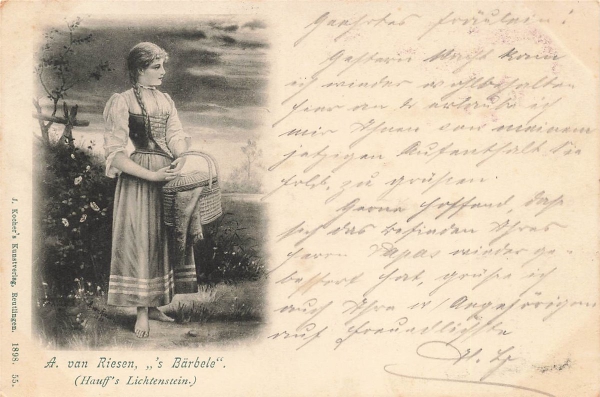 Geehrtes Fräulein!
Gestern Nacht kam
ich wieder wohlbehalten
hier an & erlaube ich
mir Ihnen von meinem
jetzigen Aufenthalt Sie
zu grüßen.
Gerne hoffend, daß
sich das Befinden Ihres
Herrn Papas wieder ge-
bessert hat, grüße ich
auch Ihre w. Angehörigen
auf Freundlichste
A. van Riesen, „'s Bärbele“.
(Hauff's Lichtenstein.)
J. Kocher's Kunstverlag, Reutlingen. 1898. 55.